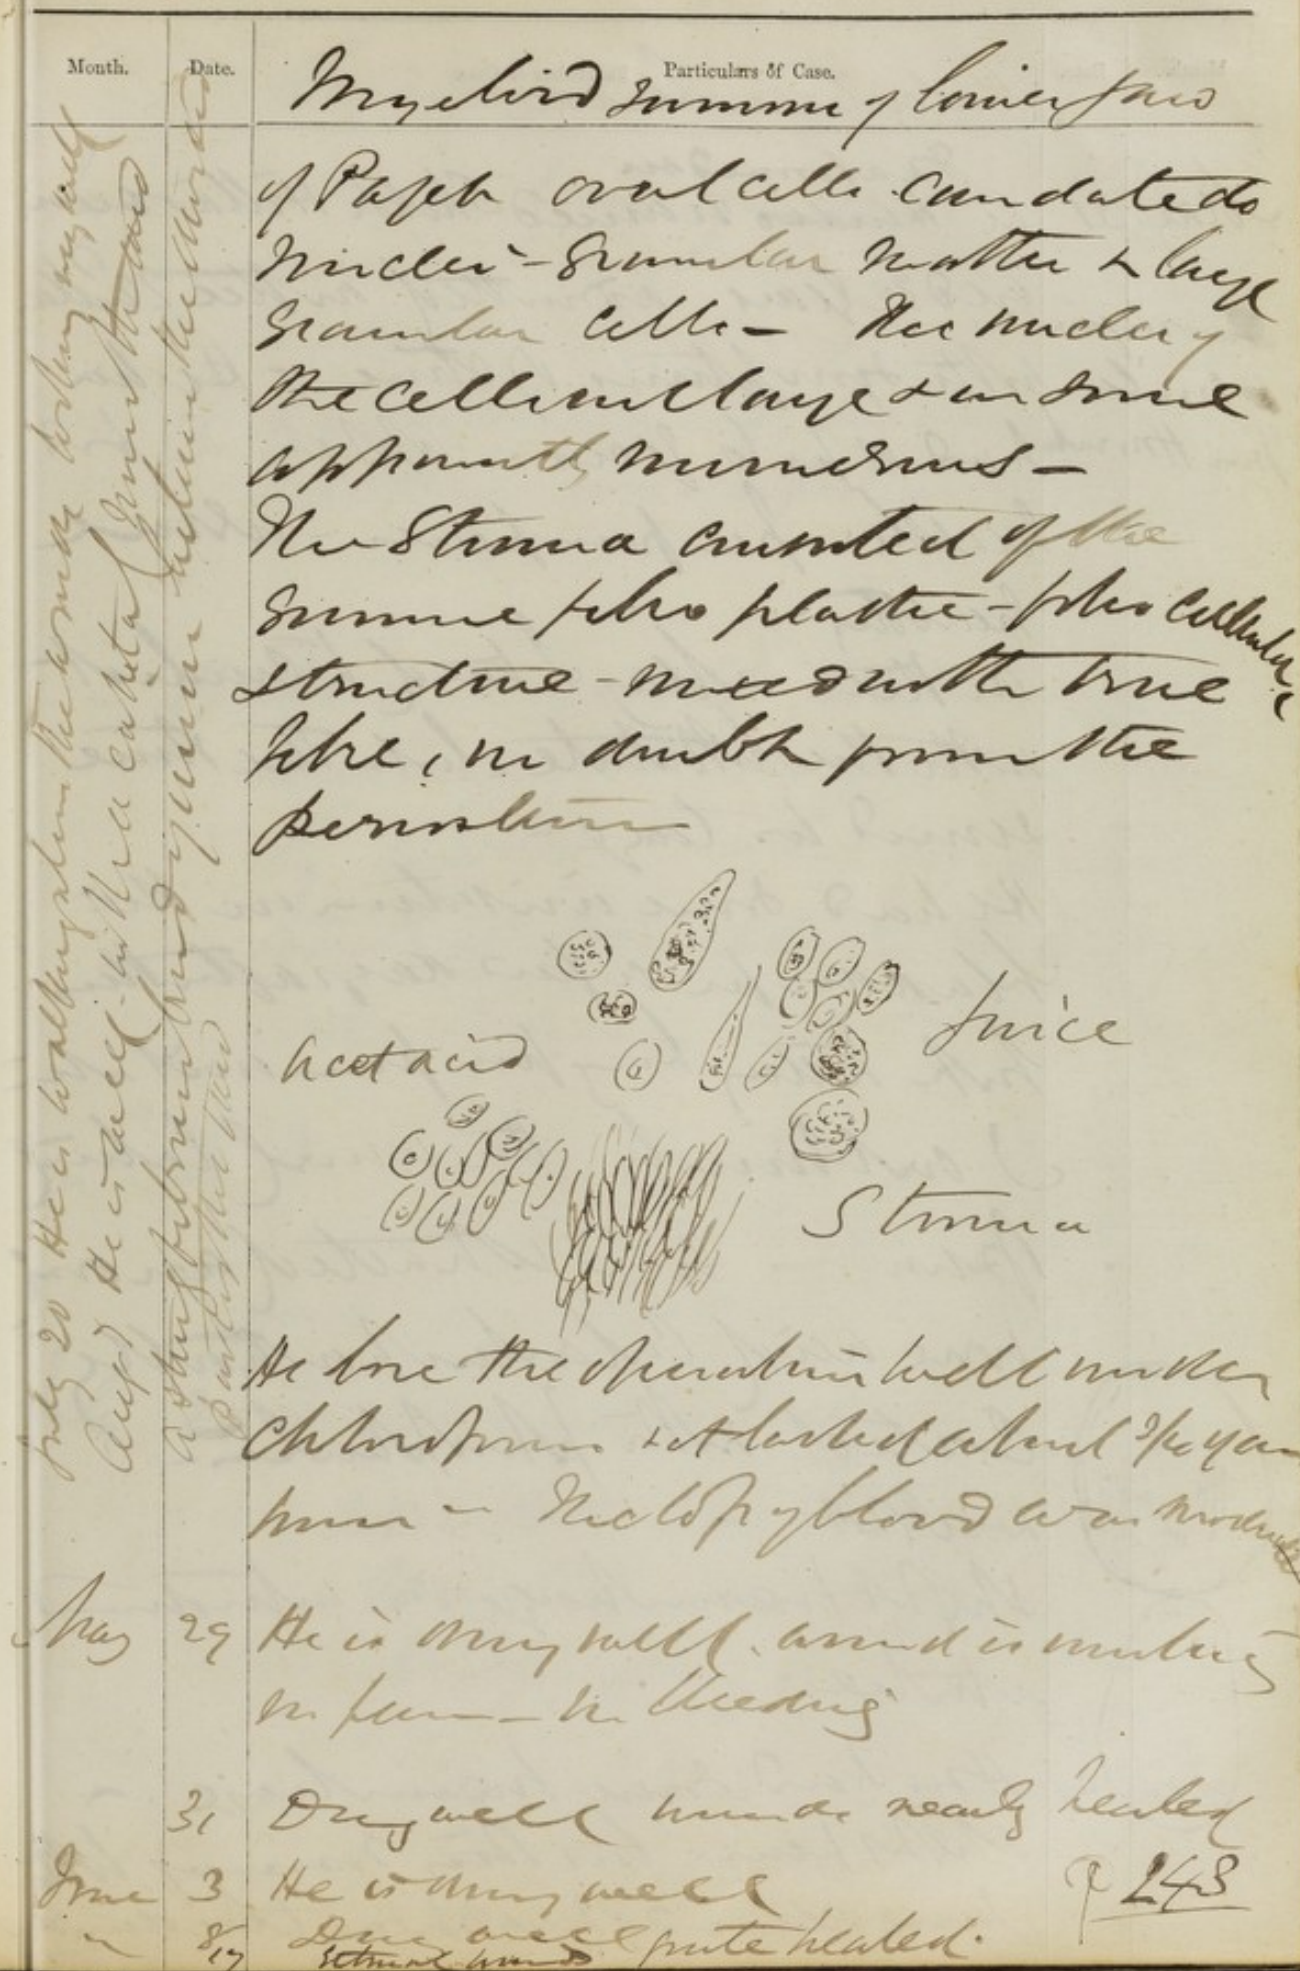 Month. Date. Particulars of Case.
Myeloid tumour of lower jaw
of Paget oval cells caudate do
nuclei - Granular matter & large
Granular cells - The nuclei of
the cells large & in some
apparently numerous -
The Stroma consisted of the
same fibro plastic - fibro cellular
structure - mixed with true
fibre, no doubt from the
periosteum
Juice
Acet acid
Stroma
He bore the operation well under
chloroform & it lasted about 3/4 of an
hour - The loss of blood was moderate
May 29 He is doing well. wound is uniting
no fever - no bleeding
31 Doing well wounds nearly healed
June 3 He is doing well P 243
" 8 Doing well quite healed.
17 External wounds
July 20 He is well has been the wounds looking very well
Augt 7 He is well - with a capital